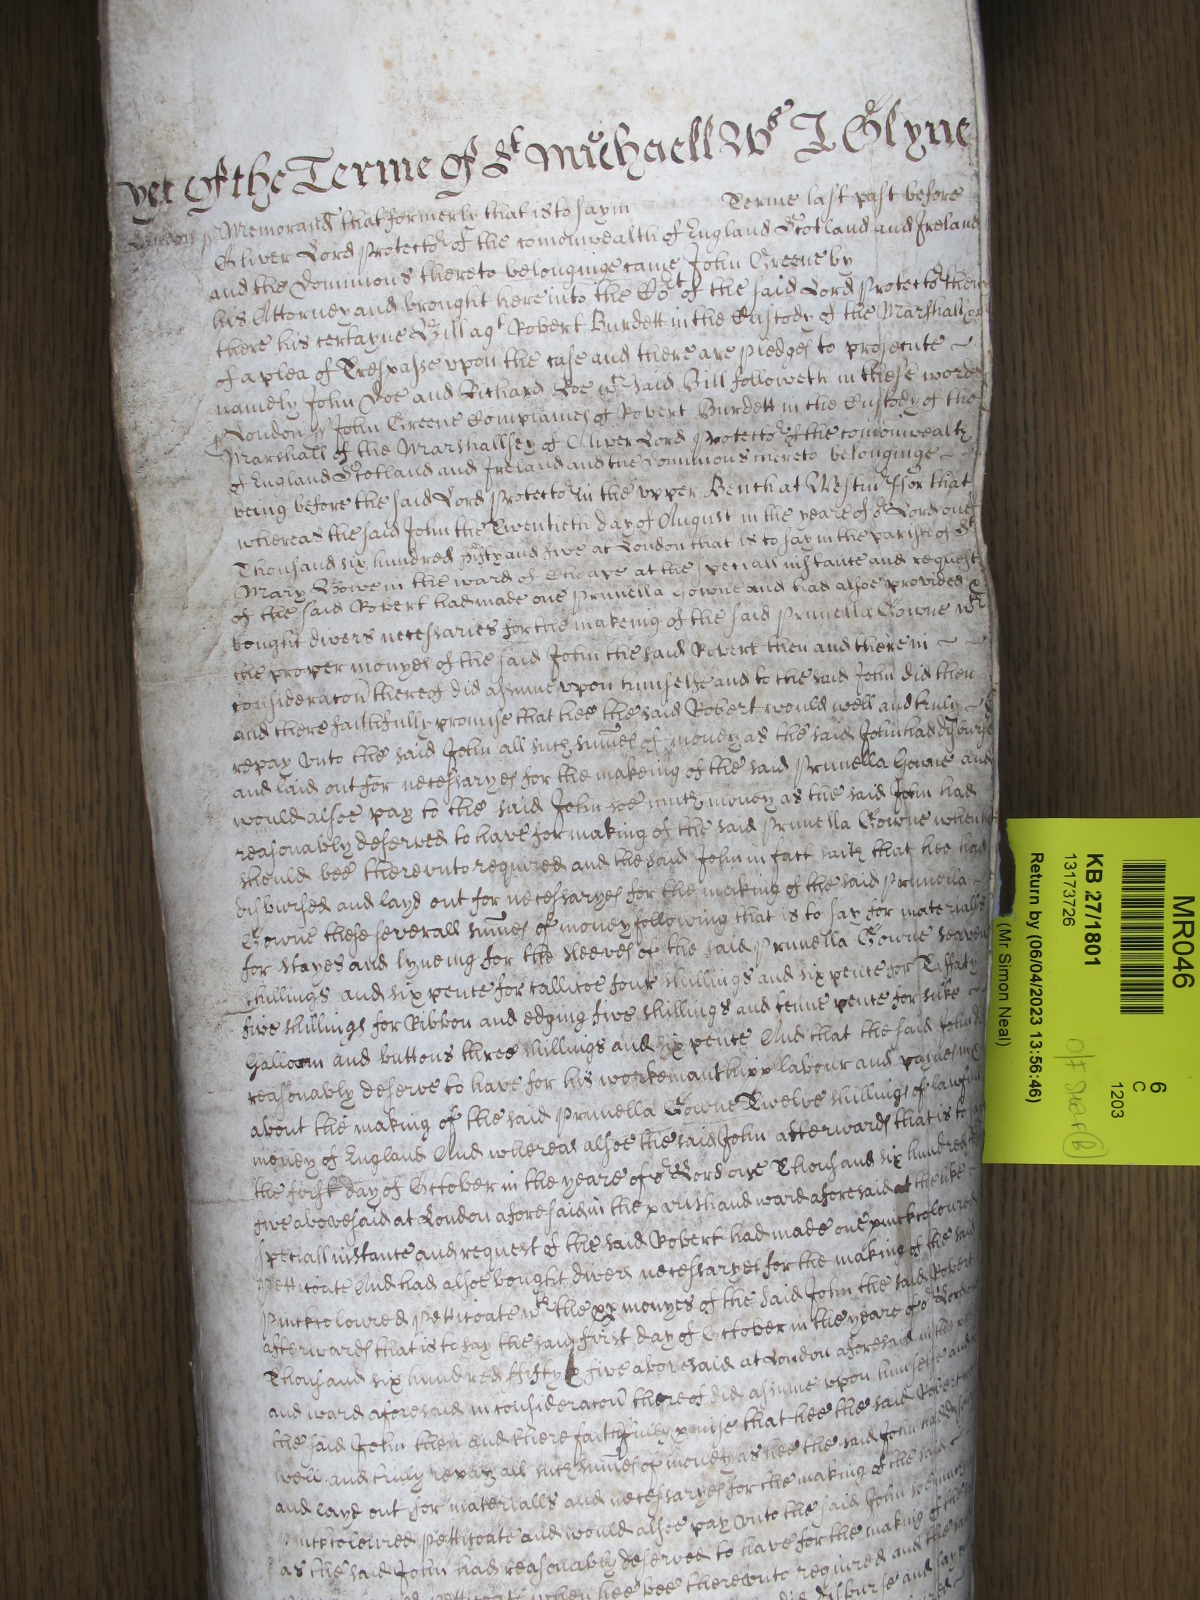 yet Of the Terme Of St Michaell Ws J Glyne
London ss Memorand that formerly that is to say in Terme last past before
Oliver Lord Protector of the comonwealth of England Scotland and Ireland
and the Dominions thereto belonginge came John Greene by
his Attorney and brought here into the Cort of the said Lord Protector then
there his certayne Bill agt Robert Burdett in the Custody of the Marshall
of a plea of Trespasse upon the case and there are pledges to prosecute
namely John Doe and Richard Roe wch said Bill followeth in these words
London ss John Greene Complaines of Robert Burdett in the Custody of the
Marshall of the Marshallsey of Oliver Lord Protector of the comonwealth
of England Scotland and Ireland and the Dominions thereto belonginge
being before the said Lord Protector in the upper Bench at Westm for that
whereas the said John the Twentieth day of August in the yeare of or Lord one
Thousand six hundred fifty and five at London that is to say in the parish of St
Mary Bowe in the ward of Cheape at the speciall instance and request
of the said Robert had made one Prunella Gowne and had alsoe provided &
bought divers necessaries for the makeing of the said Prunella Gowne wth
the proper monyes of the said John the said Robert then and there in
consideracon thereof did assume upon himselfe and to the said John did then
and there faithfully promise that hee the said Robert would well and truly
repay unto the said John all such summes of money as the said John had disbursed
and laid out for necessaryes for the makeing of the said Prunella Gowne and
would alsoe pay to the said John soe much money as the said John had
reasonably deserved to have for making of the said Prunella Gowne when hee
should bee thereunto required and the said John in fact saith that hee had
disbursed and layd out for necessaryes for the making of the said Prunella
Gowne these severall summes of money following that is to say for materialls
for stayes and lyneing for the sleeves of the said Prunella Gowne seaven
shillings and six pence for callicoe four shillings and six pence for Taffaty
five shillings for Ribbon and edging five shillings and tenne pence for silke
Galloom and buttons three shillings and six pence And that the said John did
reasonably deserve to have for his workemanshipp labour and paynes in &
about the making of the said Prunella Gowne Twelve shillings of lawfull
money of England And whereas alsoe the said John afterwards that is to say
the first day of October in the yeare of or Lord one Thousand six hundred fifty
five abovesaid at London aforesaid in the parish and ward aforesaid at the like
speciall instance and request of the said Robert had made one pinckcoloured
Petticoate And had alsoe bought divers necessaryes for the making of the said
Pinckcoloured Petticoate wth the pp monyes of the said John the said Robert
afterwards that is to say the said first day of October in the yeare of or Lord one
Thousand six hundred fifty & five abovesaid at London aforesaid in the parish
and ward aforesaid in consideracon thereof did assume upon himselfe and
the said John then and there faithfully pmise that hee the said Robert would
well and truly repay all such summes of money as hee the said John had disbursed
and layd out for materialls and necessaryes for the making of the said
Pinckcoloured Petticoate and would alsoe pay unto the said John soe much money
as the said John had reasonably deserved to have for the making of the said
petticoate when hee bee thereunto required and the said
did disburse and lay
MR046
6
C
1203
KB 27/1801
13173726
Return by (06/04/2023 13:56:46)
(Mr Simon Neal)
O/F Shelf (R)